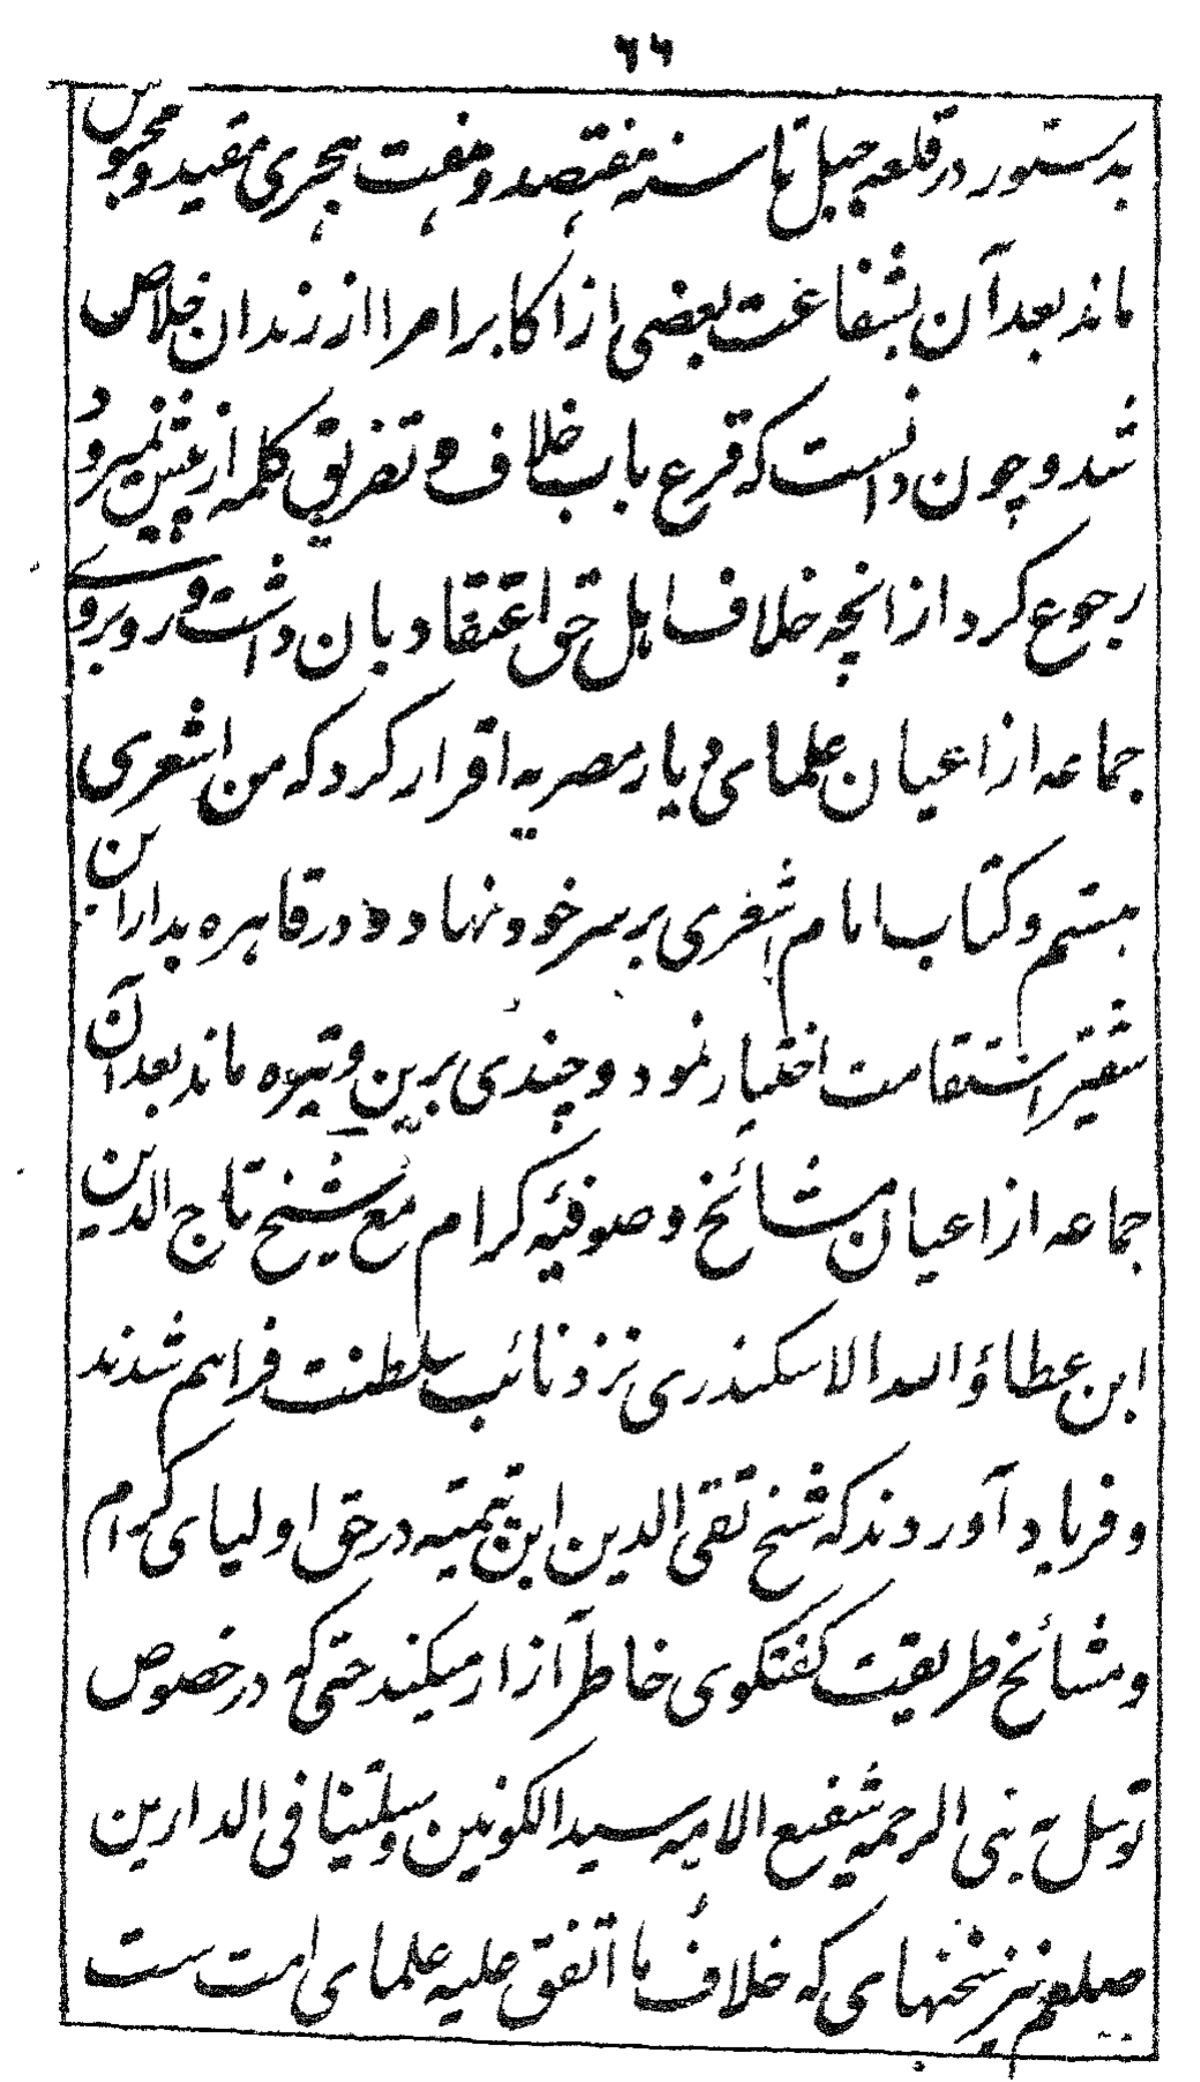 ۶۶
بدستور در قلعه جبل تا سنه هفتصد و هفت هجری مقید و محبوس
ماند بعد آن بشفاعت بعضی از اکابر امرا از زندان خلاص
شد و چون دانست که قرع باب خلاف و تفریق کلمه از پیش نمیرود
رجوع کرد از انچه خلاف اهل حق اعتقاد بان داشت و روبروے
جماعه از اعیان علمای دیار مصریه اقرار کرد که من اشعری
هستم و کتاب امام اشعری بر سر خود نهاد و در قاهره بدار ابن
شقیر استقامت اختیار نمود و چندی برین وتیره ماند بعد آن
جماعه از اعیان مشائخ و صوفیٔه کرام مع شیخ تاج الدین
ابن عطاؤ الله الاسکندری نزد نائب سلطنت فراهم شدند
و فریاد آوردند که شیخ تقی الدین ابن تیمیه در حق اولیای کرام
و مشائخ طریقیت گفتگوی خاطر آزار میکند حتی که در خصوص
توسل به نبی الرحمه شفیع الامه سید الکونین وسیلتنا فی الدارین
صلعم نیز سخنهای که خلاف ما اتفق علیه علمای امت ست